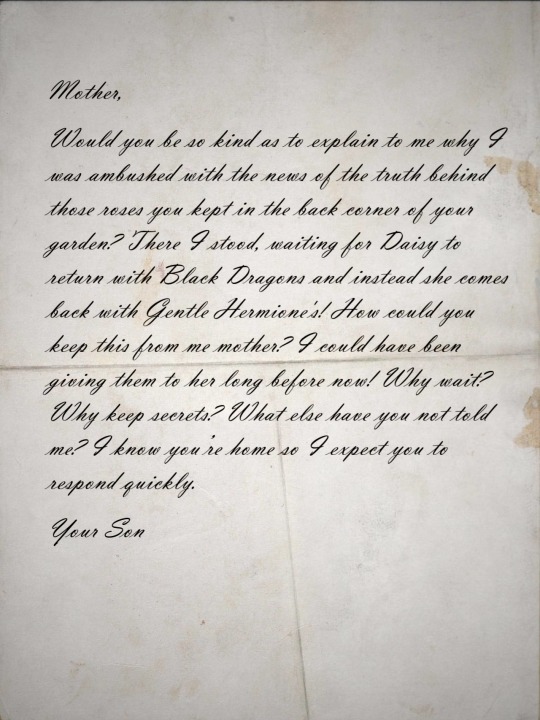 Mother,
Would you be so kind as to explain to me why I
was ambushed with the news of the truth behind
those roses you kept in the back corner of your
garden? There I stood, waiting for Daisy to
return with Black Dragons and instead she comes
back with Gentle Hermione's! How could you
keep this from me mother? I could have been
giving them to her long before now! Why wait?
Why keep secrets? What else have you not told
me? I know you're home so I expect you to
respond quickly.
Your Son